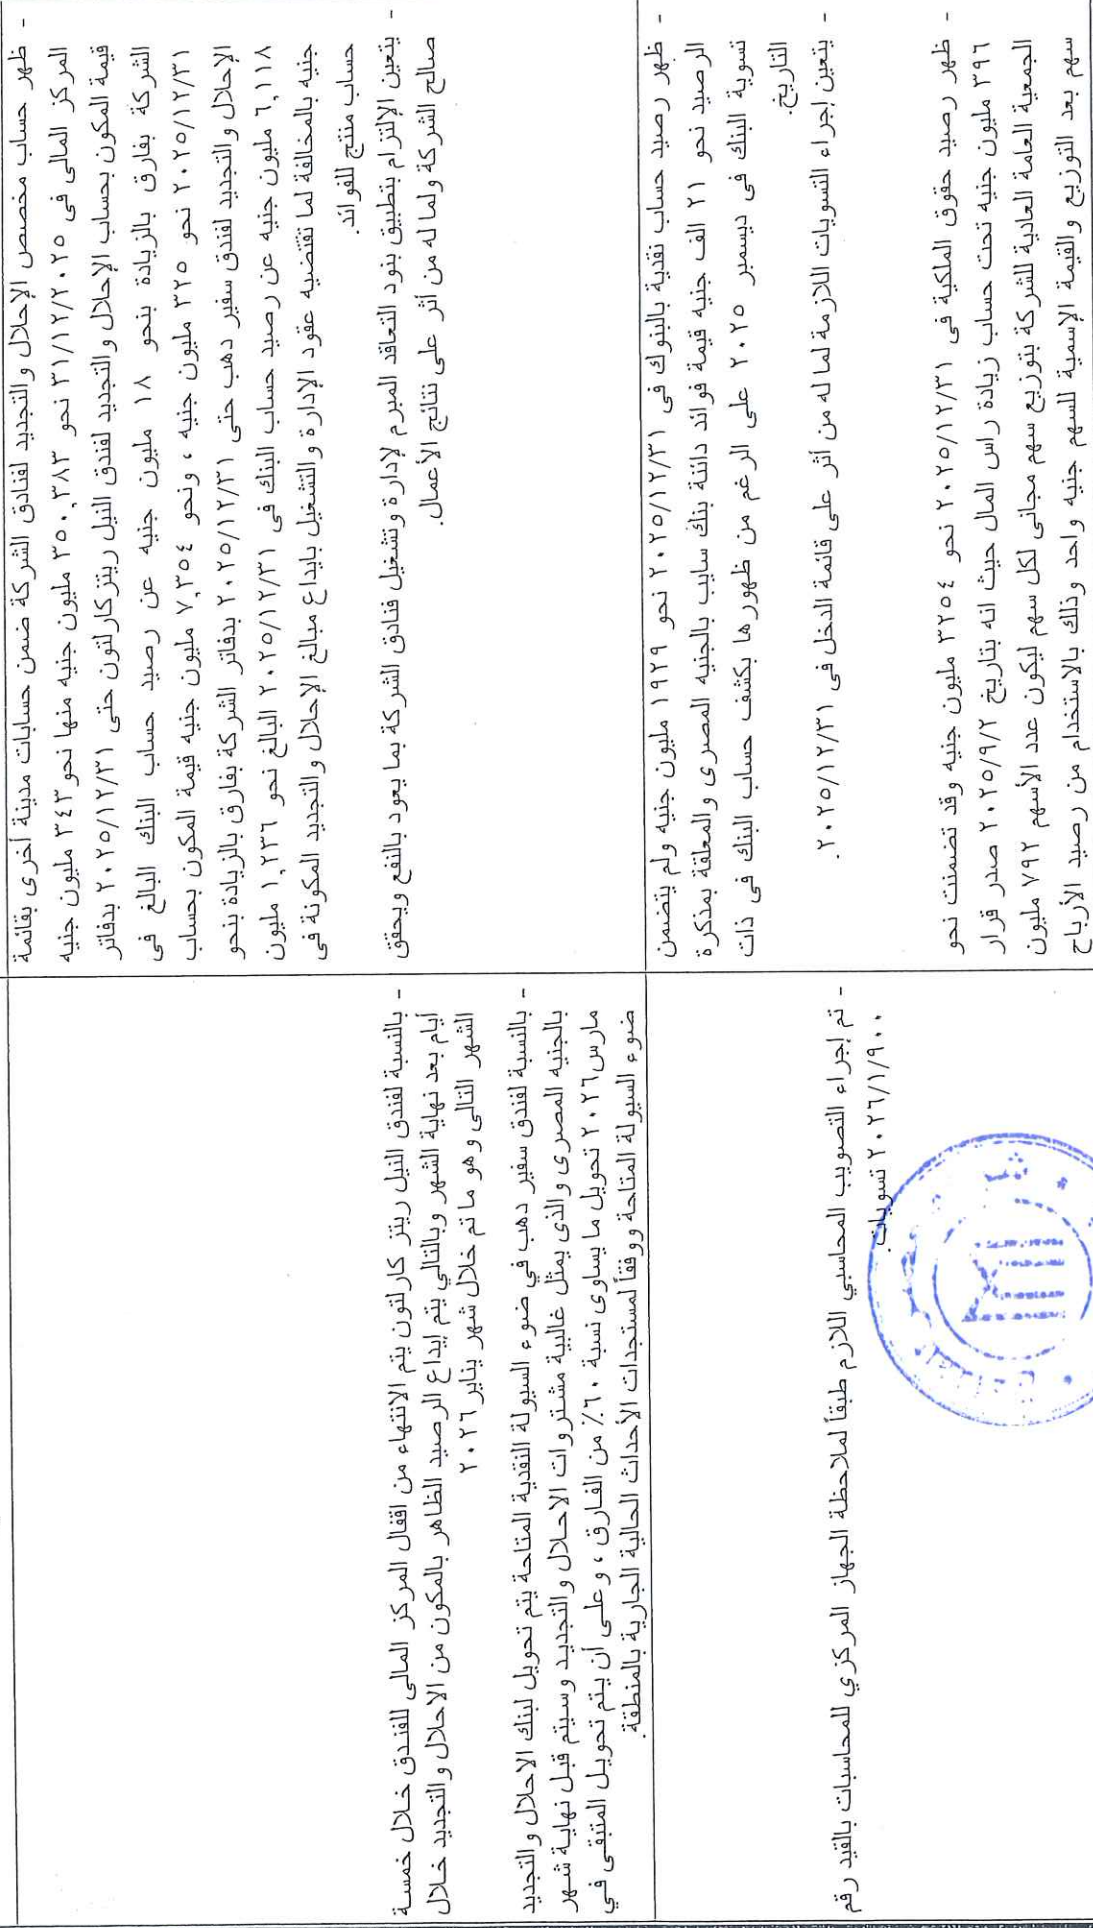 - ظهر حساب مخصص الإحلال والتجديد لفنادق الشركة ضمن حسابات مدينة أخرى بقائمة
المركز المالى فى ٣١/١٢/٢٠٢٥ نحو ٣٥٠,٣٨٣ مليون جنيه منها نحو٣٤٣ مليون جنيه
قيمة المكون بحساب الإحلال والتجديد لفندق النيل ريتزكارلتون حتى ٢٠٢٥/١٢/٣١ بدفاتر
الشركة بفارق بالزيادة بنحو ١٨ مليون جنيه عن رصيد حساب البنك البالغ فى
٢٠٢٥/١٢/٣١ نحو ٣٢٥ مليون جنيه ، ونحو ٧,٣٥٤ مليون جنيه قيمة المكون بحساب
الإحلال والتجديد لفندق سفير دهب حتى ٢٠٢٥/١٢/٣١ بدفاتر الشركة بفارق بالزيادة بنحو
٦,١١٨ مليون جنيه عن رصيد حساب البنك فى ٢٠٢٥/١٢/٣١ البالغ نحو ١,٢٣٦ مليون
جنيه بالمخالفة لما تقتضيه عقود الإدارة والتشغيل بايداع مبالغ الإحلال والتجديد المكونة فى
حساب منتج للفوائد.
- يتعين الإلتزام بتطبيق بنود التعاقد المبرم لإدارة وتشغيل فنادق الشركة بما يعود بالنفع ويحقق
صالح الشركة ولما له من أثر على نتائج الأعمال.
- بالنسبة لفندق النيل ريتز كارلتون يتم الانتهاء من اقفال المركز المالى للفندق خلال خمسة
أيام بعد نهاية الشهر وبالتالي يتم إيداع الرصيد الظاهر بالمكون من الاحلال والتجديد خلال
الشهر التالى وهو ما تم خلال شهر يناير ٢٠٢٦
- بالنسبة لفندق سفير دهب في ضوء السيولة النقدية المتاحة يتم تحويل لبنك الاحلال والتجديد
بالجنيه المصرى والذى يمثل غالبية مشتروات الاحلال والتجديد وسيتم قبل نهاية شهر
مارس٢٠٢٦ تحويل ما يساوى نسبة ٦٠٪ من الفارق ، وعلى أن يتم تحويل المتبقى في
ضوء السيولة المتاحة ووفقاً لمستجدات الأحداث الحالية الجارية بالمنطقة.
- ظهر رصيد حساب نقدية بالبنوك فى ٢٠٢٥/١٢/٣١ نحو ١٩٢٩ مليون جنيه ولم يتضمن
الرصيد نحو ٢١ الف جنيه قيمة فوائد دائنة بنك سايب بالجنيه المصرى والمعلقة بمذكرة
تسوية البنك فى ديسمبر ٢٠٢٥ على الرغم من ظهورها بكشف حساب البنك فى ذات
التاريخ.
- يتعين إجراء التسويات اللازمة لما له من أثر على قائمة الدخل فى ٢٠٢٥/١٢/٣١.
- ظهر رصيد حقوق الملكية فى ٢٠٢٥/١٢/٣١ نحو ٣٢٥٤ مليون جنيه وقد تضمنت نحو
٣٩٦ مليون جنيه تحت حساب زيادة راس المال حيث انه بتاريخ ٢٠٢٥/٩/٢ صدر قرار
الجمعية العامة العادية للشركة بتوزيع سهم مجانى لكل سهم ليكون عدد الأسهم ٧٩٢ مليون
سهم بعد التوزيع والقيمة الإسمية للسهم جنيه واحد وذلك بالاستخدام من رصيد الأرباح
- تم إجراء التصويب المحاسبي اللازم طبقاً لملاحظة الجهاز المركزي للمحاسبات بالقيد رقم
٢٠٢٦/١/٩٠٠ تسويات.